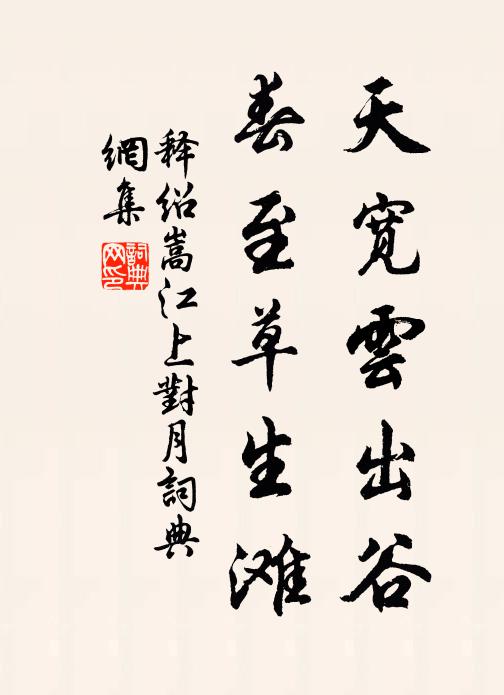 天寬雲出谷
春至草生滩
释绍嵩江上對月詞典
網集
詞典網印